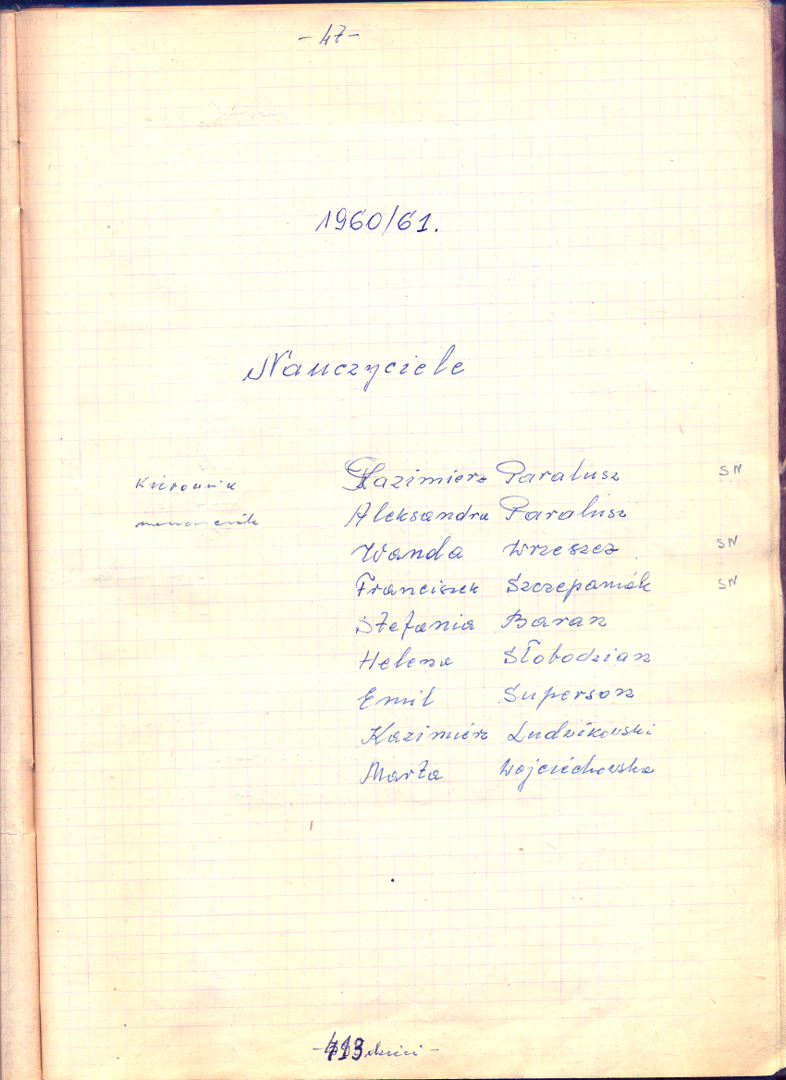 - 47 -
1960/61.
Nauczyciele
Kierownik Kazimierz Paralusz SN
Aleksandra Paralusz
Wanda Wrzeszcz SN
Franciszek Szczepaniak SN
Stefania Baran
Helena Słobodzian
Emil Superson
Kazimierz Ludzikowski
Marta Wojciechowska
- 413 dzieci -